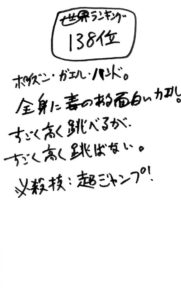 世界ランキング
138位
ポイズン・ガエル・バンド。
全身に毒のある面白いカエル。
すごく高く跳べるが、
すごく高く跳ばない。
必殺技：超ジャンプ!